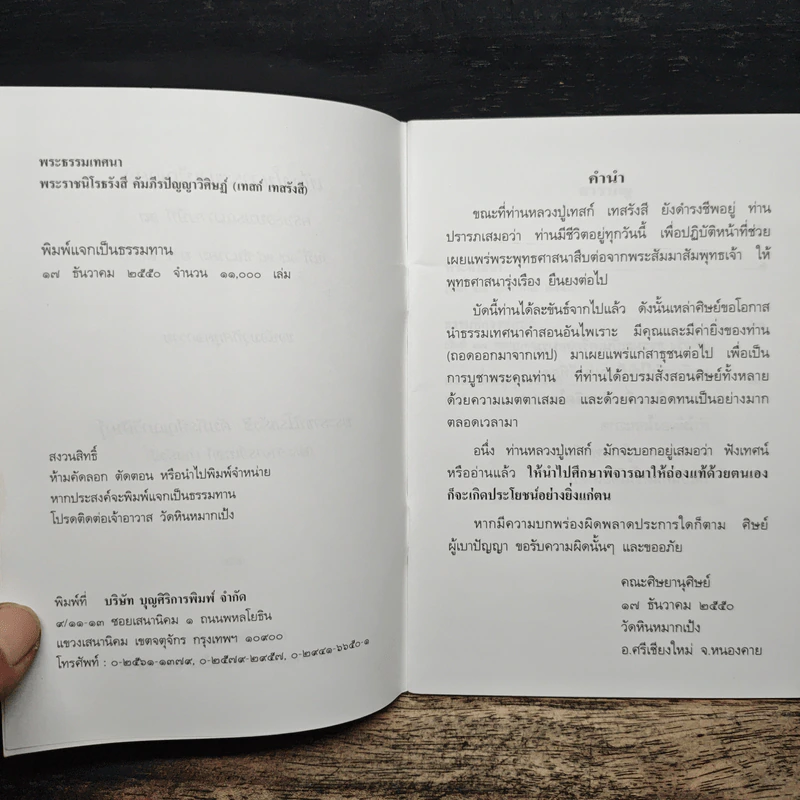 พระธรรมเทศนา
พระราชนิโรธรังสี คัมภีรปัญญาวิศิษฏ์ (เทสก์ เทสรังสี)
พิมพ์แจกเป็นธรรมทาน
๑๗ ธันวาคม ๒๕๕๐ จำนวน ๑๑,๐๐๐ เล่ม
สงวนสิทธิ์
ห้ามคัดลอก ตัดตอน หรือนำไปพิมพ์จำหน่าย
หากประสงค์จะพิมพ์แจกเป็นธรรมทาน
โปรดติดต่อเจ้าอาวาส วัดหินหมากเป้ง
พิมพ์ที่ บริษัท บุญศิริการพิมพ์ จำกัด
๙/๑๑-๑๓ ซอยเสนานิคม ๑ ถนนพหลโยธิน
แขวงเสนานิคม เขตจตุจักร กรุงเทพฯ ๑๐๙๐๐
โทรศัพท์ : ๐-๒๕๖๑-๑๓๗๙, ๐-๒๕๗๙-๒๙๕๗, ๐-๒๙๔๑-๖๖๕๐-๑
คำนำ
ขณะที่ท่านหลวงปู่เทสก์ เทสรังสี ยังดำรงชีพอยู่ ท่าน
ปรารภเสมอว่า ท่านมีชีวิตอยู่ทุกวันนี้ เพื่อปฏิบัติหน้าที่ช่วย
เผยแพร่พระพุทธศาสนาสืบต่อจากพระสัมมาสัมพุทธเจ้า ให้
พุทธศาสนารุ่งเรือง ยืนยงต่อไป
บัดนี้ท่านได้ละขันธ์จากไปแล้ว ดังนั้นเหล่าศิษย์ขอโอกาส
นำธรรมเทศนาคำสอนอันไพเราะ มีคุณและมีค่ายิ่งของท่าน
(ถอดออกมาจากเทป) มาเผยแพร่แก่สาธุชนต่อไป เพื่อเป็น
การบูชาพระคุณท่าน ที่ท่านได้อบรมสั่งสอนศิษย์ทั้งหลาย
ด้วยความเมตตาเสมอ และด้วยความอดทนเป็นอย่างมาก
ตลอดเวลามา
อนึ่ง ท่านหลวงปู่เทสก์ มักจะบอกอยู่เสมอว่า ฟังเทศน์
หรืออ่านแล้ว ให้นำไปศึกษาพิจารณาให้ถ่องแท้ด้วยตนเอง
ก็จะเกิดประโยชน์อย่างยิ่งแก่ตน
หากมีความบกพร่องผิดพลาดประการใดก็ตาม ศิษย์
ผู้เบาปัญญา ขอรับความผิดนั้นๆ และขออภัย
คณะศิษยานุศิษย์
๑๗ ธันวาคม ๒๕๕๐
วัดหินหมากเป้ง
อ.ศรีเชียงใหม่ จ.หนองคาย